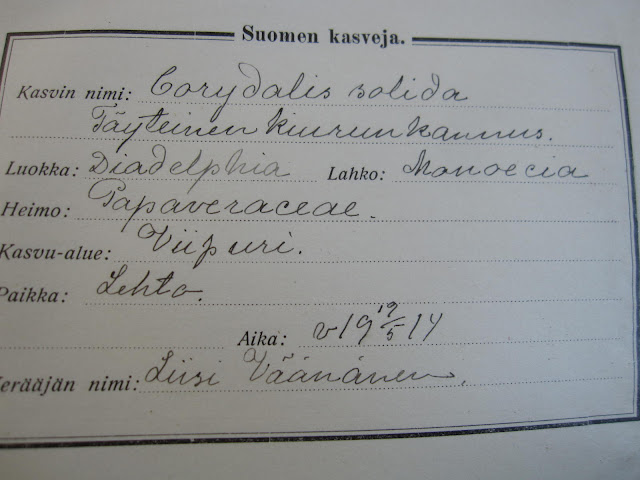 Suomen kasveja.
Kasvin nimi: Corydalis solida
Täyteinen kiurunkannus.
Luokka: Diadelphia Lahko: Monoecia
Heimo: Papaveraceae.
Kasvu-alue: Viipuri.
Paikka: Lehto.
Aika: v19 19/5 14
Kerääjän nimi: Liisi Väänänen.